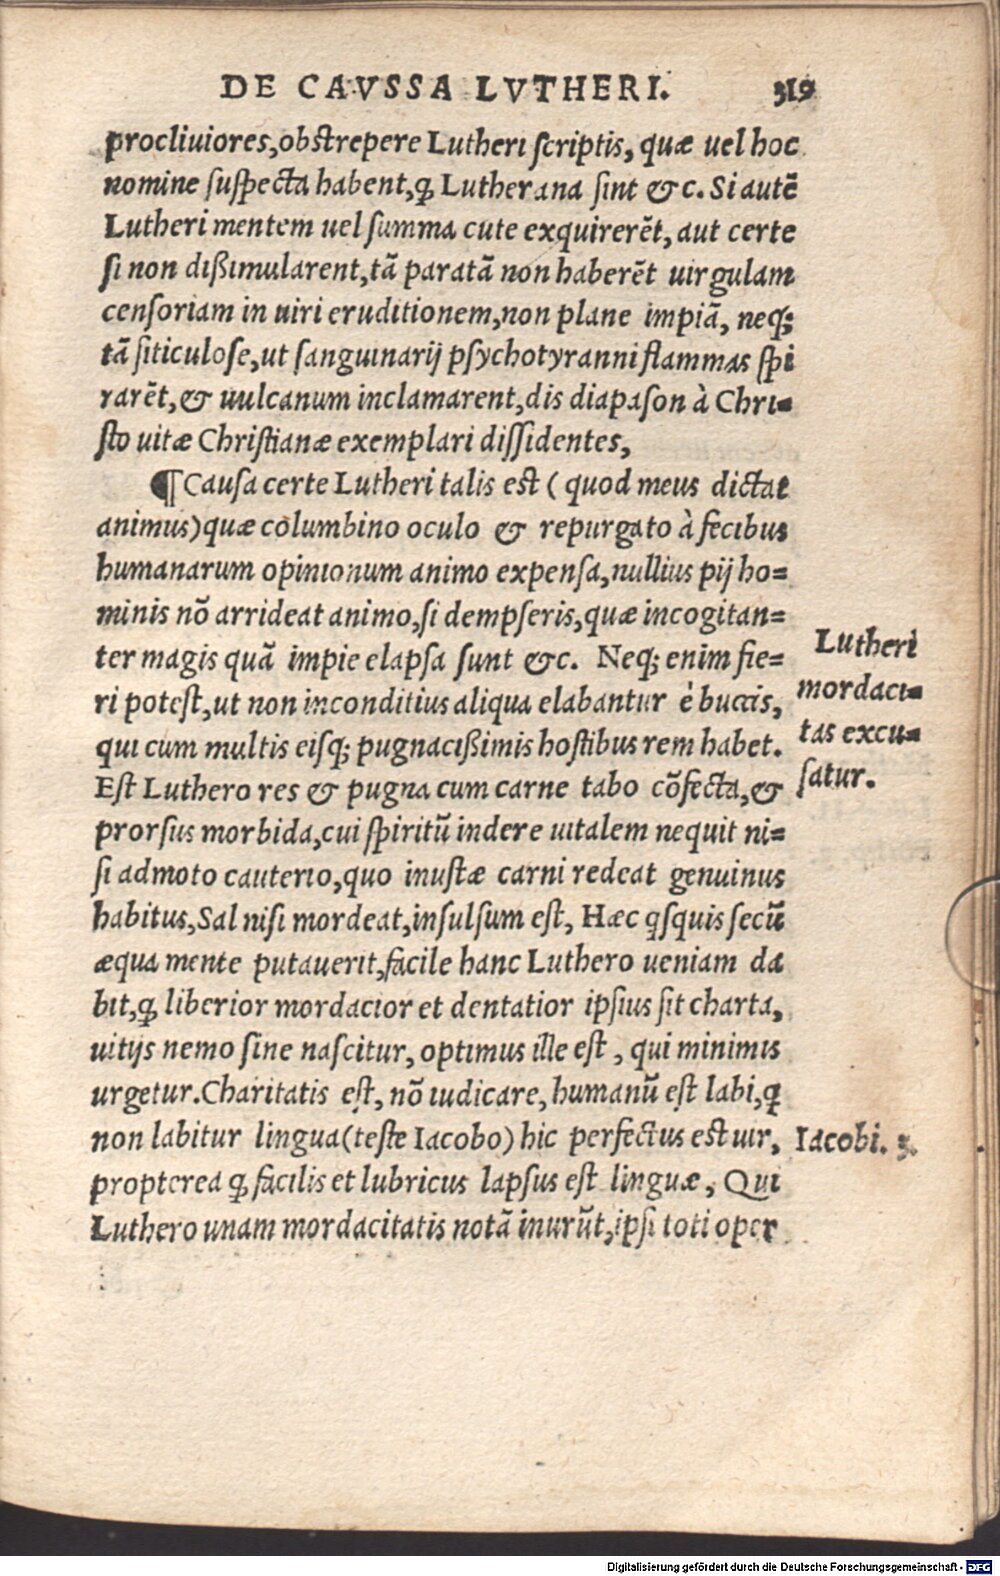 DE CAVSSA LVTHERI. 319
procliuiores,obstrepere Lutheri scriptis, quæ uel hoc
nomine suspecta habent,ꝙ Lutherana sint &c. Si autē
Lutheri mentem uel summa cute exquirerēt, aut certe
si non dißimularent,tā paratā non haberēt uirgulam
censoriam in uiri eruditionem,non plane impiā, neq;
tā siticulose,ut sanguinarij psychotyranni flammas spi
rarēt,& uulcanum inclamarent,dis diapason à Chri=
sto uitæ Christianæ exemplari dissidentes,
¶Causa certe Lutheri talis est ( quod meus dictat
animus)quæ columbino oculo & repurgato à fecibus
humanarum opinionum animo expensa,nullius pij ho=
minis nō arrideat animo,si dempseris,quæ incogitan=
ter magis quā impie elapsa sunt &c. Neq; enim fie=
ri potest,ut non inconditius aliqua elabantur è buccis,
qui cum multis eisq; pugnacißimis hostibus rem habet.
Est Luthero res & pugna cum carne tabo cōfecta,&
prorsus morbida,cui spiritū indere uitalem nequit ni=
si admoto cauterio,quo inustæ carni redeat genuinus
habitus,Sal nisi mordeat,insulsum est, Hæc qsquis secū
æqua mente putauerit,facile hanc Luthero ueniam da
bit,ꝙ liberior mordacior et dentatior ipsius sit charta,
uitijs nemo sine nascitur, optimus ille est , qui minimis
urgetur.Charitatis est, nō iudicare, humanū est labi,q
non labitur lingua(teste Iacobo) hic perfectus est uir,
propterea ꝙ facilis et lubricus lapsus est linguæ, Qui
Luthero unam mordacitatis notā inurūt,ipsi toti oper
Lutheri
mordaci=
tas excu=
satur.
Iacobi. 3.
Digitalisierung gefördert durch die Deutsche Forschungsgemeinschaft - DFG